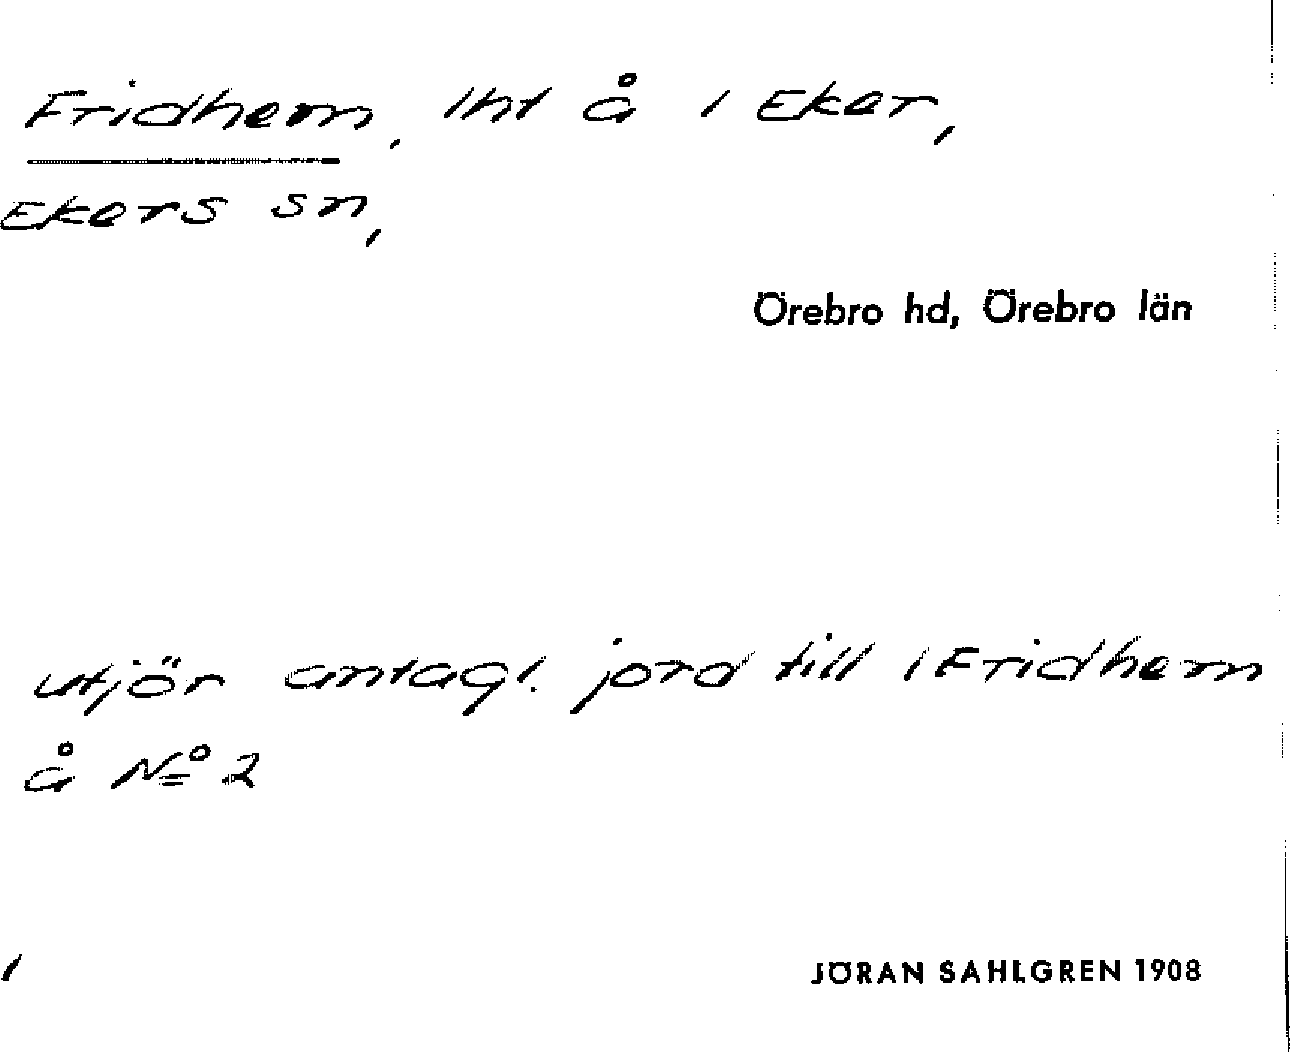 Fridhem, lht å 1 Eker,
Ekers sn,
Örebro hd, Örebro län
utjör antagl. jord till 1 Fridhem
å No 2
1
JÖRAN SAHLGREN 1908